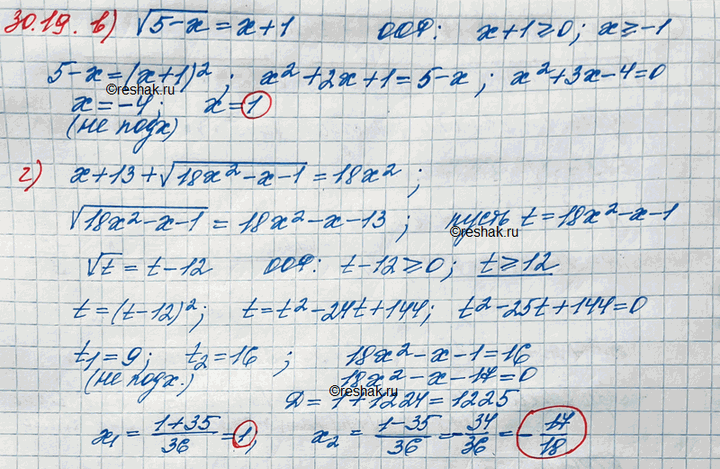 30.19. в) √(5-x) = x+1 ООФ: x+1≥0; x≥-1
5-x=(x+1)²; x²+2x+1=5-x; x²+3x-4=0
©reshak.ru
x=-4; x=1
(не подх)
г) x+13+√(18x²-x-1)=18x²;
√(18x²-x-1)=18x²-x-13; пусть t=18x²-x-1
©reshak.ru
√t=t-12 ООФ: t-12≥0; t≥12
t=(t-12)²; t=t²-24t+144; t²-25t+144=0
t₁=9; t₂=16; 18x²-x-1=16
(не подх.) 18x²-x-17=0
©reshak.ru
D=1+1224=1225
x₁=(1+35)/36=1, x₂=(1-35)/36=-34/36=-17/18